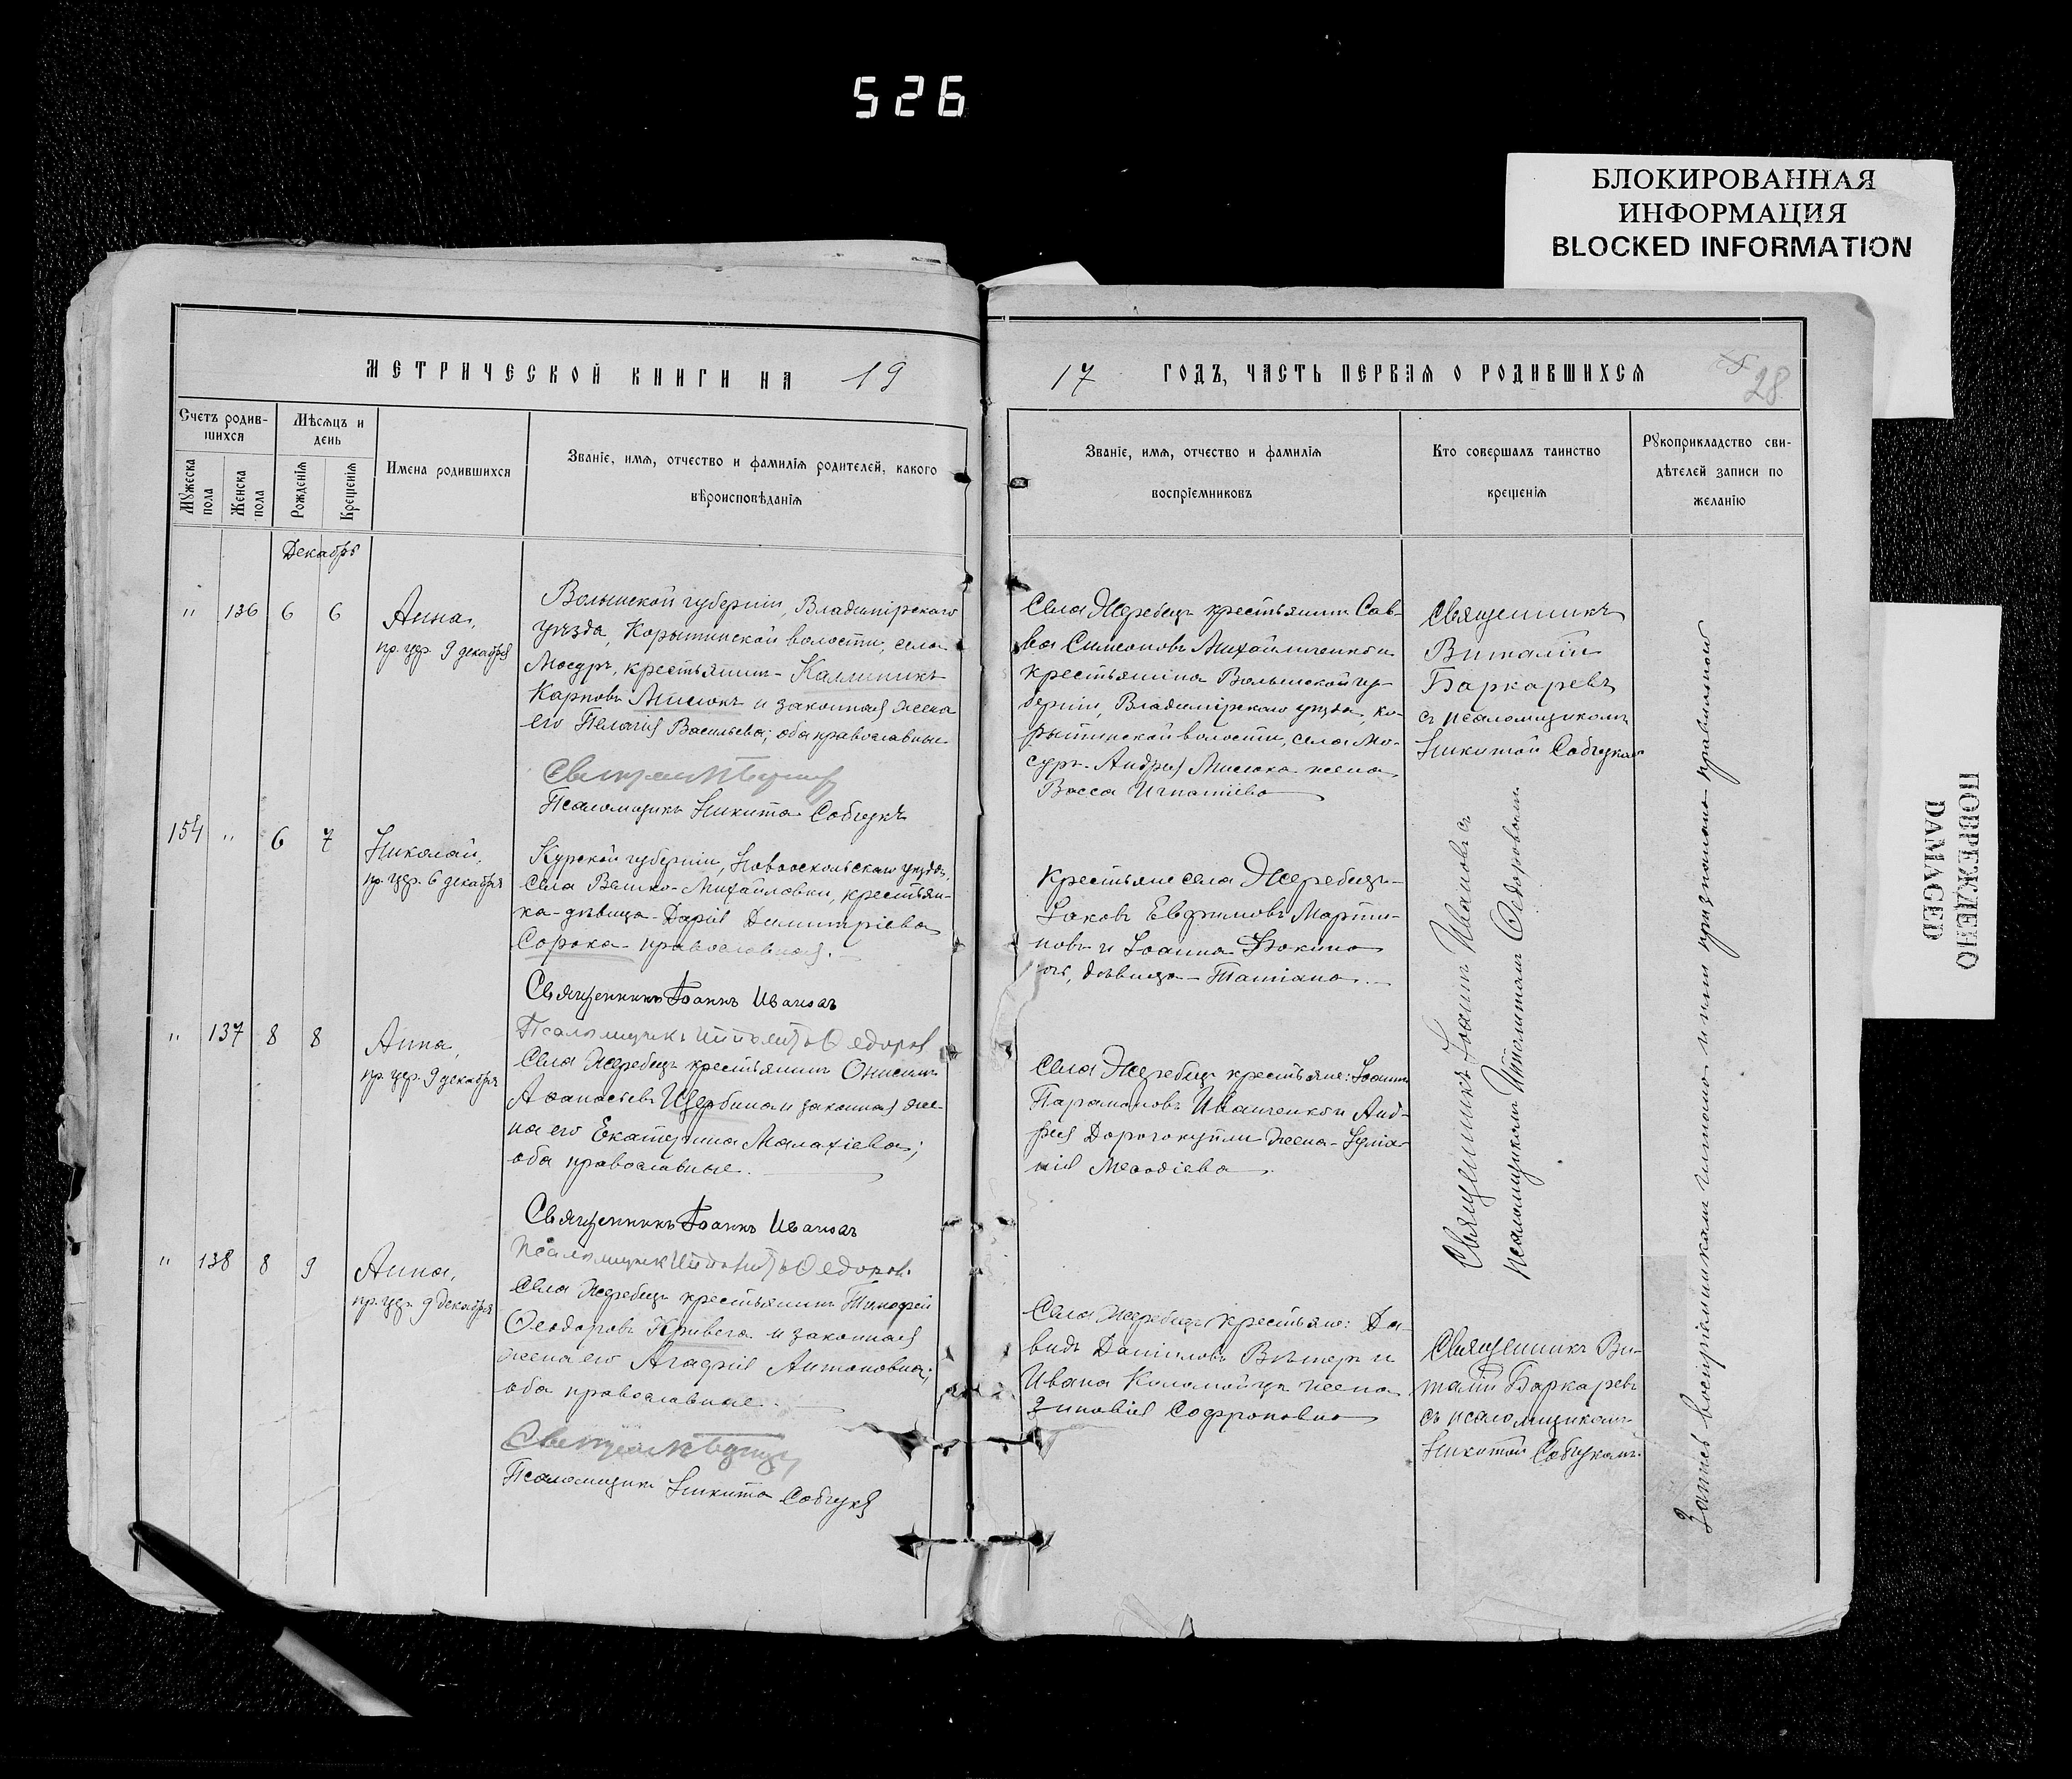 526
БЛОКИРОВАННАЯ
ИНФОРМАЦИЯ
BLOCKED INFORMATION
ПОВРЕЖДЕНО
DAMAGED
МЕТРИЧЕСКОЙ КНИГИ НА 19
17 ГОДЪ, ЧАСТЬ ПЕРВАЯ О РОДИВШИХСЯ
28
Счетъ родив-
шихся
Мужеска
пола
Женска
пола
Мѣсяцъ и
день
Рожденія
Крещенія
Имена родившихся
Званіе, имя, отчество и фамилія родителей, какого
вѣроисповѣданія
Званіе, имя, отчество и фамилія
воспріемниковъ
Кто совершалъ таинство
крещенія
Рукоприкладство сви-
дѣтелей записи по
желанію
Декабрь
" 136 6 6
Анна,
пр. цер. 9 декабря
Волынской губерніи, Владимірскаго
уѣзда, Корытнской волости, села
Мосуръ, крестьянинъ Каллиникъ
Карповъ Мисюкъ и законная жена
его Пелагія Васильева; оба православные
Псаломщикъ Никита Собчукъ
Села Жеребецъ крестьянинъ Сав-
ва Симеоновъ Михайличенко и
крестьянина Волынской гу-
берніи, Владимірскаго уѣзда, Ко-
рытнской волости, села Мо-
суръ Андрея Мисюка жена
Васса Игнатіева
Священникъ
Виталій
Баркаревъ
съ псаломщикомъ
Никитой Собчукомъ
154 " 6 7
Николай,
пр. цер. 6 декабря
Курской губерніи, Новооскольскаго уѣзда,
села Велико-Михайловки, крестьян-
ка-дѣвица Дарія Димитріева
Сорока - православная.
Священникъ Іоаннъ Ивановъ
Псаломщикъ Ипполитъ Ѳедоровъ
Крестьяне села Жеребецъ
Іаковъ Евфимовъ Марти-
новъ и Іоанна
дѣвица - Татіана.
" 137 8 8
Анна,
пр. цер. 9 декабря
Села Жеребецъ крестьянинъ Онисимъ
Аѳанасьевъ Щербина и законная же-
на его Екатерина Малахіева;
оба православные.
Священникъ Іоаннъ Ивановъ
Псаломщикъ Ипполитъ Ѳедоровъ
Села Жеребецъ крестьяне: Іоаннъ
Парамоновъ Иванченко и Анд-
рея Дорогокупли жена - Іуліа-
нія Меѳодіева
Священникъ Іоаннъ Ивановъ съ
псаломщикомъ Ипполитомъ Ѳедоровымъ
" 138 8 9
Анна,
пр. цер. 9 декабря
Села Жеребецъ крестьянинъ Тимофей
Ѳеодоровъ Кривега и законная
жена его Агафія Антоновна;
оба православные.
Псаломщикъ Никита Собчукъ
Села Жеребецъ крестьяне: Да-
видъ Даніиловъ Вѣтеръ и
Ивана Коломойца жена
Зиновія Софроновна
Священникъ Ви-
талій Баркаревъ
съ псаломщикомъ
Никитой Собчукомъ.
Запись воспріемникамъ читана и ими признана правильной